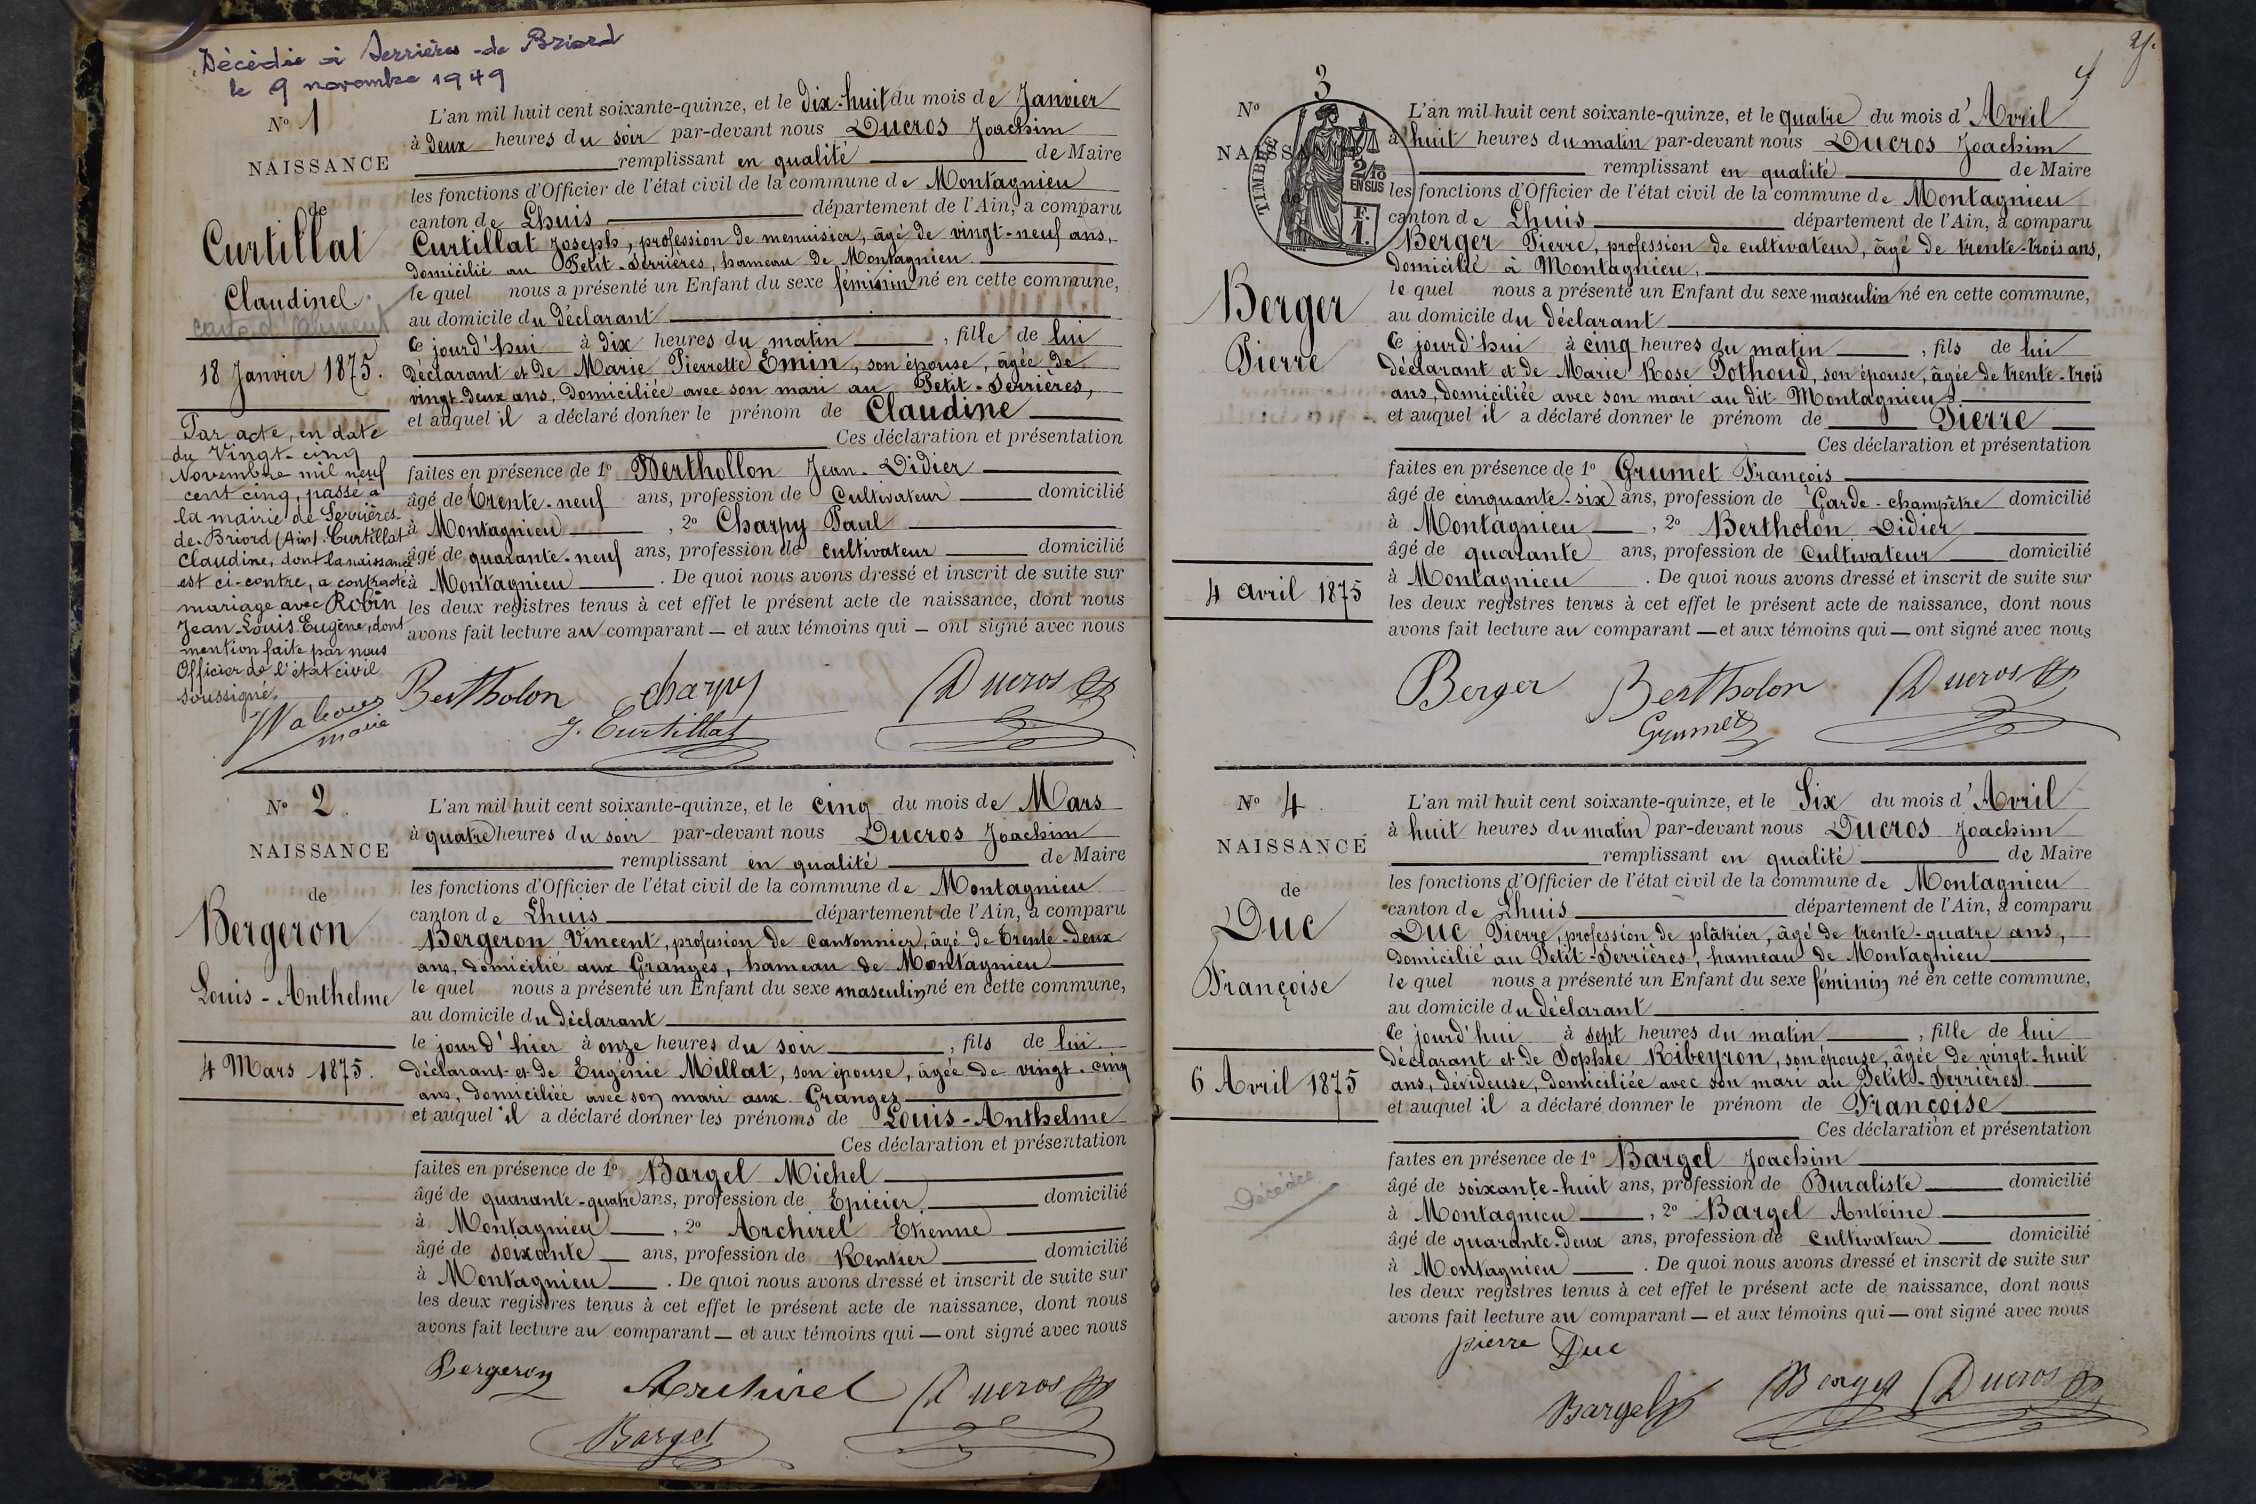 Décédée à Serrières-de Briord
le 9 novembre 1949
N° 1
NAISSANCE
de
Curtillat
Claudine
18 Janvier 1875.
Par acte, en date
du Vingt-cinq
Novembre mil neuf
cent cinq, passé à
la mairie de Serrières-
de-Briord (Ain). Curtillat
Claudine, dont la naissance
est ci-contre, a contracté
mariage avec Robin
Jean-Louis Eugène, dont
mention faite par nous
Officier de l'état civil
soussigné.
maire
L'an mil huit cent soixante-quinze, et le dix-huit du mois de Janvier
à deux heures du soir par-devant nous Ducros Joachim
remplissant en qualité de Maire
les fonctions d'Officier de l'état civil de la commune de Montagnieu
canton de Lhuis département de l'Ain, a comparu
Curtillat Joseph, profession de menuisier, âgé de vingt-neuf ans,
domicilié au Petit-Serrières, hameau de Montagnieu
le quel nous a présenté un Enfant du sexe féminin né en cette commune,
au domicile du déclarant
Ce jourd'hui à dix heures du matin, fille de lui
déclarant et de Marie Pierrette Emin, son épouse, âgée de
vingt-deux ans, domiciliée avec son mari au Petit-Serrières,
et auquel il a déclaré donner le prénom de Claudine
Ces déclaration et présentation
faites en présence de 1° Berthollon Jean-Didier
âgé de trente-neuf ans, profession de Cultivateur domicilié
à Montagnieu, 2° Charpy Paul
âgé de quarante-neuf ans, profession de cultivateur domicilié
à Montagnieu. De quoi nous avons dressé et inscrit de suite sur
les deux registres tenus à cet effet le présent acte de naissance, dont nous
avons fait lecture au comparant — et aux témoins qui — ont signé avec nous
Bertholon Charpy Ducros
J. Curtillat
N° 2.
NAISSANCE
de
Bergeron
Louis-Anthelme
4 Mars 1875.
L'an mil huit cent soixante-quinze, et le cinq du mois de Mars
à quatre heures du soir par-devant nous Ducros Joachim
remplissant en qualité de Maire
les fonctions d'Officier de l'état civil de la commune de Montagnieu
canton de Lhuis département de l'Ain, a comparu
Bergeron Vincent, profession de cantonnier, âgé de trente-deux
ans, domicilié aux Granges, hameau de Montagnieu
le quel nous a présenté un Enfant du sexe masculin né en cette commune,
au domicile du déclarant
le jour d'hier à onze heures du soir, fils de lui
déclarant et de Eugénie Millat, son épouse, âgée de vingt-cinq
ans, domiciliée avec son mari aux Granges
et auquel il a déclaré donner les prénoms de Louis-Anthelme
Ces déclaration et présentation
faites en présence de 1° Bargel Michel
âgé de quarante-quatre ans, profession de Epicier domicilié
à Montagnieu, 2° Archirel Etienne
âgé de soixante ans, profession de Rentier domicilié
à Montagnieu. De quoi nous avons dressé et inscrit de suite sur
les deux registres tenus à cet effet le présent acte de naissance, dont nous
avons fait lecture au comparant — et aux témoins qui — ont signé avec nous
Bergeron Archirel Ducros
Bargel
N° 3
NAISSANCE
de
TIMBRE
2/10
EN SUS
F.
1.
Berger
Pierre
4 avril 1875
L'an mil huit cent soixante-quinze, et le quatre du mois d'Avril
à huit heures du matin par-devant nous Ducros Joachim
remplissant en qualité de Maire
les fonctions d'Officier de l'état civil de la commune de Montagnieu
canton de Lhuis département de l'Ain, a comparu
Berger Pierre, profession de cultivateur, âgé de trente-trois ans,
domicilié à Montagnieu,
le quel nous a présenté un Enfant du sexe masculin né en cette commune,
au domicile du déclarant
Ce jourd'hui à cinq heures du matin, fils de lui
déclarant et de Marie Rose Pothoud, son épouse, âgée de trente-trois
ans, domiciliée avec son mari au dit Montagnieu
et auquel il a déclaré donner le prénom de Pierre
Ces déclaration et présentation
faites en présence de 1° Grumet François
âgé de cinquante-six ans, profession de Garde-champêtre domicilié
à Montagnieu, 2° Bertholon Didier
âgé de quarante ans, profession de Cultivateur domicilié
à Montagnieu. De quoi nous avons dressé et inscrit de suite sur
les deux registres tenus à cet effet le présent acte de naissance, dont nous
avons fait lecture au comparant — et aux témoins qui — ont signé avec nous
Berger Bertholon Ducros
Grumet
N° 4.
NAISSANCE
de
Duc
Françoise
6 Avril 1875
Décédée
L'an mil huit cent soixante-quinze, et le Six du mois d'Avril
à huit heures du matin par-devant nous Ducros Joachim
remplissant en qualité de Maire
les fonctions d'Officier de l'état civil de la commune de Montagnieu
canton de Lhuis département de l'Ain, a comparu
Duc Pierre, profession de plâtrier, âgé de trente-quatre ans,
domicilié au Petit-Serrières, hameau de Montagnieu
le quel nous a présenté un Enfant du sexe féminin né en cette commune,
au domicile du déclarant
Ce jourd'hui à sept heures du matin, fille de lui
déclarant et de Sophie Ribeyron, son épouse, âgée de vingt-huit
ans, dévideuse, domiciliée avec son mari au Petit-Serrières
et auquel il a déclaré donner le prénom de Françoise
Ces déclaration et présentation
faites en présence de 1° Bargel Joachim
âgé de soixante-huit ans, profession de Buraliste domicilié
à Montagnieu, 2° Bargel Antoine
âgé de quarante-deux ans, profession de cultivateur domicilié
à Montagnieu. De quoi nous avons dressé et inscrit de suite sur
les deux registres tenus à cet effet le présent acte de naissance, dont nous
avons fait lecture au comparant — et aux témoins qui — ont signé avec nous
pierre Duc
Bargel Bargel Ducros